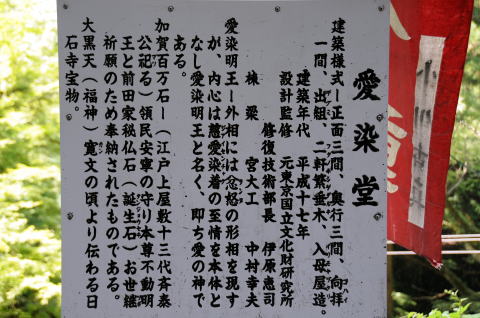 愛染堂
建築様式ー正面三間、奥行三間、向拝
一間、出組、二軒繁垂木、入母屋造。
建築年代 平成十七年
設計監修 元東京国立文化財研究所
修復技術部長 伊原恵司
棟梁 宮大工 中村幸夫
愛染明王ー外相には忿怒の形相を現す
が、内心は慈愛染着の至情を本体と
なし愛染明王と名く、即ち愛の神で
ある。
加賀百万石ー(江戸上屋敷十三代斉泰
公記る)領民安寧の守り本尊不動明
王と前田家秘仏石(誕生石)お世継
祈願のため奉納されたものである。
大黒天(福神)寛文の頃より伝わる日
石寺宝物。